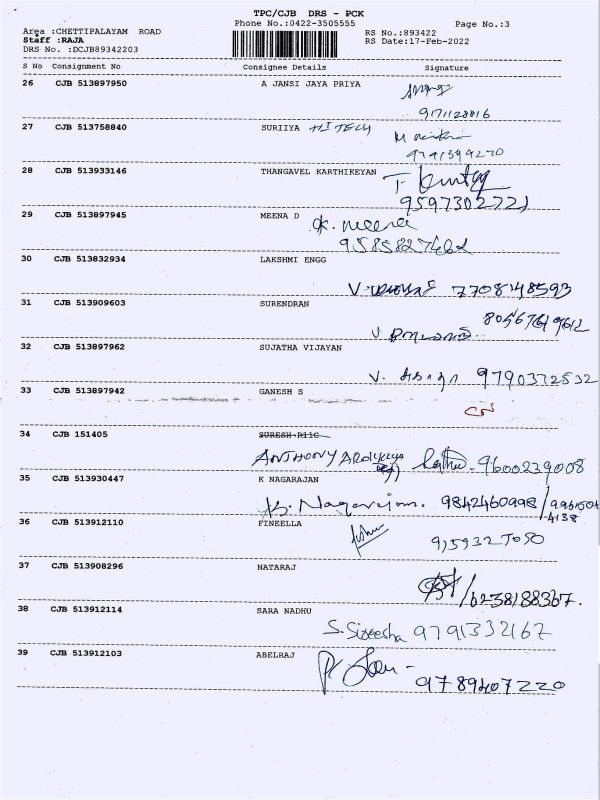 TPC/CJB DRS - PCK
Phone No.:0422-3505555
Page No.:3
Area :CHETTIPALAYAM ROAD
RS No.:893422
Staff :RAJA
RS Date:17-Feb-2022
DRS No. :DCJB89342203
S No Consignment No Consignee Details Signature
26 CJB 513897950 A JANSI JAYA PRIYA
27 CJB 513758840 SURIIYA HI TECH
28 CJB 513933146 THANGAVEL KARTHIKEYAN
9597302721
29 CJB 513897945 MEENA D
K. meena
9585827462
30 CJB 513832934 LAKSHMI ENGG
7708148593
31 CJB 513909603 SURENDRAN
32 CJB 513897962 SUJATHA VIJAYAN
9790372532
33 CJB 513897942 GANESH S
34 CJB 151405 SURESH R11C
ANTHONY
9600239008
35 CJB 513930447 K NAGARAJAN
K. Nagarajan. 9842460998/
36 CJB 513912110 FINEELLA
37 CJB 513908296 NATARAJ
/6238188367.
38 CJB 513912114 SARA NADHU
S. Sireesha 9791332167
39 CJB 513912103 ABELRAJ
9789407220